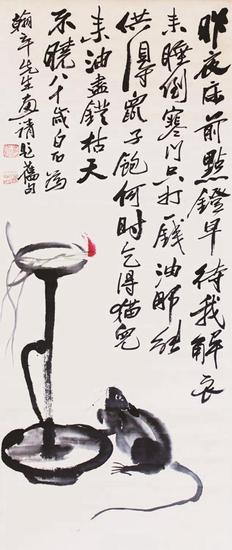 昨夜床前點鐙早待我解衣
來睡倒寒門只打一錢油那能
供得鼠子飽何時乞得貓兒
來油盡鐙枯天
不曉八十歲白石為
先生畫題舊句